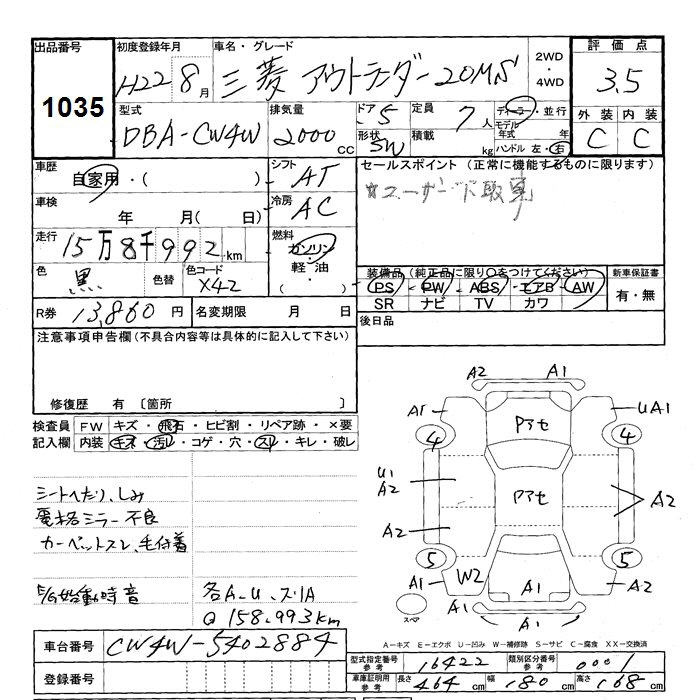 出品番号
1035
初度登録年月
H22 8月
車名・グレード
三菱 アウトランダー 20MS
2WD・4WD
評価点
3.5
外装 内装
C C
型式
DBA-CW4W
排気量
2000 cc
ドア 5
形状 SW
定員 7人
積載 kg
ディーラー・並行
モデル年式 年
ハンドル 左・右
車歴
自家用・( )
シフト AT
車検
年 月( 日)
冷房 AC
走行
15万8千992km
燃料
ガソリン・軽油・( )
色 黒
色替
色コード X42
セールスポイント (正常に機能するものに限ります)
ユーザー下取車
装備品 (純正品に限り○をつけてください)
PS・PW・ABS・エアB・AW
SR ナビ TV カワ
新車保証書
有・無
R券 13,860円
名変期限 月 日
後日品
注意事項申告欄(不具合内容等は具体的に記入して下さい)
修復歴 有 [箇所 ]
検査員記入欄
FW キズ・飛石・ヒビ割・リペア跡・×要
内装 キズ・汚れ・コゲ・穴・スレ・キレ・破レ
シートへたり、しみ
電格ミラー不良
カーペットスレ、毛付着
E/G始動時音
各A.U.スリA
Q 158.993km
A2 A1
A1 UA1
Pアセ
4 4
U1
A2
Pアセ
A2
A2
5 5
A1 W2 A1 A1
A1 A1
スペア
A1
車台番号 CW4W-5402884
登録番号
A-キズ E-エクボ U-凹み W-補修跡 S-サビ C-腐食 XX-交換済
型式指定番号 参考 16422
類別区分番号 参考 0001
車庫証明用 参考 長さ 464cm 幅 180cm 高さ 168cm